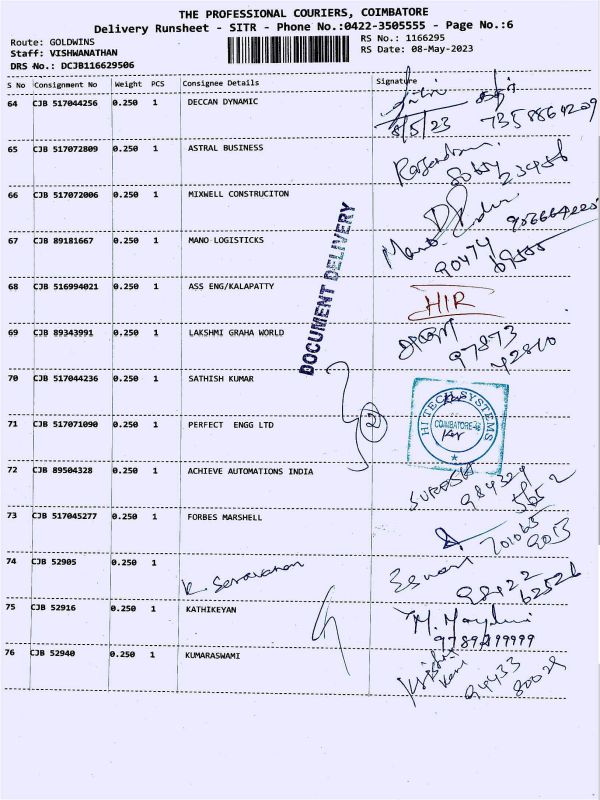 THE PROFESSIONAL COURIERS, COIMBATORE
Delivery Runsheet - SITR - Phone No.:0422-3505555 - Page No.:6
Route: GOLDWINS
RS No.: 1166295
Staff: VISHWANATHAN
RS Date: 08-May-2023
DRS No.: DCJB116629506
S No Consignment No Weight PCS Consignee Details Signature
64 CJB 517044256 0.250 1 DECCAN DYNAMIC
8/5/23 7358864209
65 CJB 517072809 0.250 1 ASTRAL BUSINESS
66 CJB 517072006 0.250 1 MIXWELL CONSTRUCITON
67 CJB 89181667 0.250 1 MANO LOGISTICKS
Mano
90474
68 CJB 516994021 0.250 1 ASS ENG/KALAPATTY
HIR
69 CJB 89343991 0.250 1 LAKSHMI GRAHA WORLD
97873
42810
DOCUMENT DELIVERY
70 CJB 517044236 0.250 1 SATHISH KUMAR
71 CJB 517071090 0.250 1 PERFECT ENGG LTD
2
HI TECH SYSTEMS
COIMBATORE-48
72 CJB 89504328 0.250 1 ACHIEVE AUTOMATIONS INDIA
SURESH
984329
5652
73 CJB 517045277 0.250 1 FORBES MARSHELL
9013
74 CJB 52905 0.250 1 K. Saravanan
Eswari
98422
62526
75 CJB 52916 0.250 1 KATHIKEYAN
M.
9789499999
76 CJB 52940 0.250 1 KUMARASWAMI
94433
80029